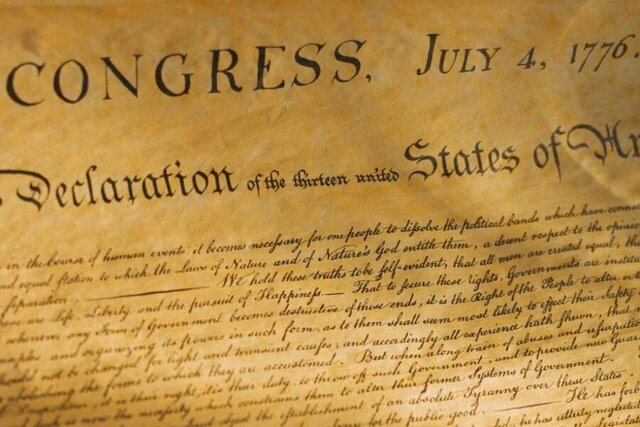 CONGRESS, JULY 4, 1776.
Declaration of the thirteen united States of Am
in the Course of human events: it becomes necessary for one people to dissolve the political bands which have connec
and equal station to which the Laws of Nature and of Nature's God entitle them, a decent respect to the opinion
separation We hold these truths to be self-evident, that all men are created equal, th
are Life, Liberty and the pursuit of Happiness.— That to secure these rights, Governments are institu
whenever any Form of Government becomes destructive of these ends, it is the Right of the People to alter or
and organizing its powers in such form, as to them shall seem most likely to effect their Safety
should not be changed for light and transient causes; and accordingly all experience hath shewn, that
abolishing the forms to which they are accustomed. But when a long train of abuses and usurpation
Despotism, it is their right, it is their duty, to throw off such Government, and to provide new Guar
is now the necessity which constrains them to alter their former Systems of Government.
object the establishment of an absolute Tyranny over these States.
for the public good. He has forb
he has utterly neglected